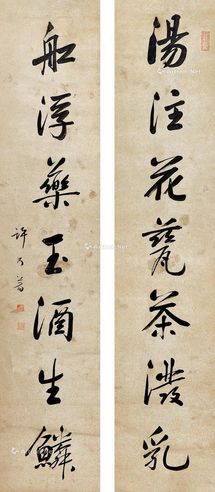 湯注花甆茶潑乳
船浮藥玉酒生鱗
許乃普